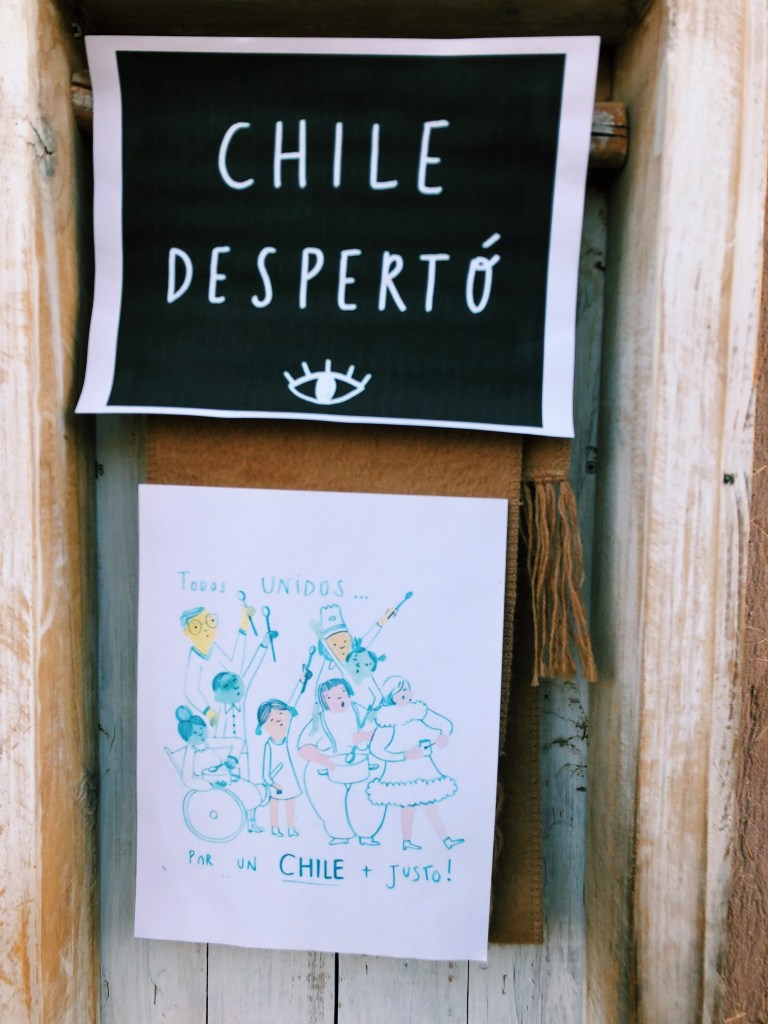 CHILE
DESPERTÓ
TODOS UNIDOS...
POR UN CHILE + JUSTO!